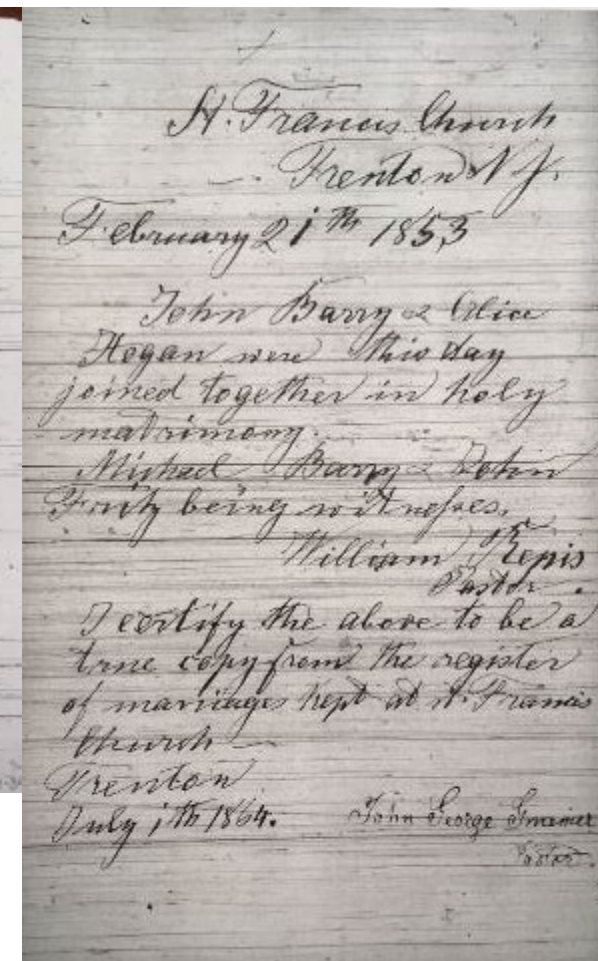 St. Francis Church
Trenton N J.
February 21th 1853
John Barry & Alice
Hogan were this day
joined together in holy
matrimony.
Michael Barry & John
Fritz being witnesses.
William
Pastor.
I certify the above to be a
true copy from the register
of marriages kept at St. Francis
Church —
Trenton
July 1th 1864. John George
Pastor.